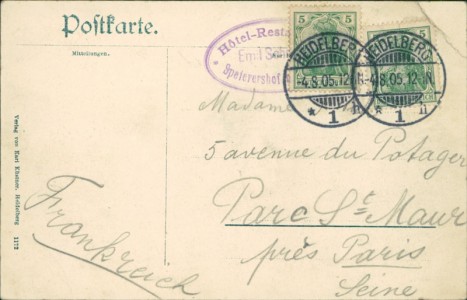 Postkarte.
Mitteilungen.
Hôtel-Resta
Emil
Speierershof
5
5
HEIDELBERG
-4.8.05.12
* 1 h
HEIDELBERG
-4.8.05.12-1N.
* 1 h
Madame
5 avenue du Potager
Parc St Maur
près Paris
Seine
Frankreich
Verlag von Karl Heidelberg 1172